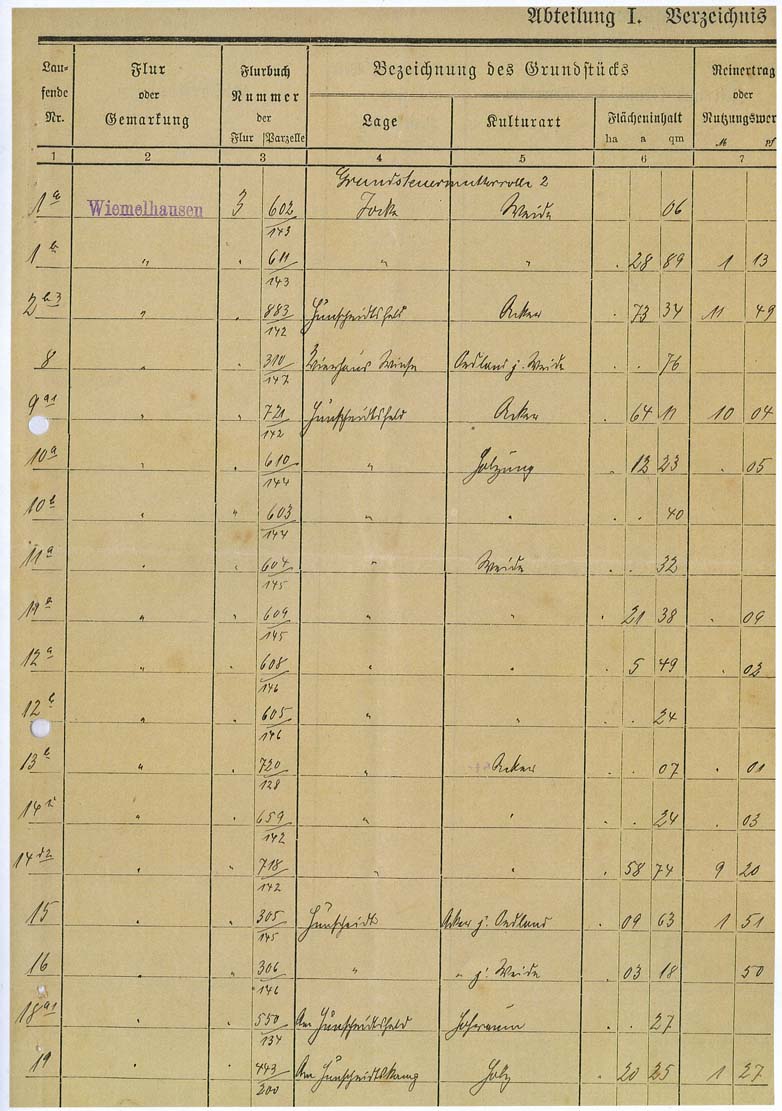 Abteilung I. Verzeichnis
Lau- Flur Flurbuch Bezeichnung des Grundstücks Reinertrag
fende oder Nummer oder
Nr. Gemarkung der Lage Kulturart Flächeninhalt Nutzungswer
Flur Parzelle ha a qm M pf
1 2 3 4 5 6 7
Grundsteuermutterrolle 2
1a Wiemelhausen 3 602/143 Jocke Weide 06
1b " " 611/143 " " . 28 89 1 13
2b3 " " 883/142 Hünscheidtsfeld Acker . 73 34 11 49
8 " " 310/147 Wiese Oedland j. Weide . . 76
9a1 " " 721/142 Hünscheidtsfeld Acker . 64 11 10 04
10a " " 610/144 " Holzung . 12 23 . 05
10b " " 603/144 " " . . 40
11a " " 604/145 " Weide . . 32
" " 609/145 " " . 21 38 . 09
12a " " 608/146 " " . 5 49 . 02
12b " " 605/146 " " . . 24
13b " " 720/128 " Acker . . 07 . 01
" " 659/142 " " . . 24 . 03
14d2 " " 718/142 " " . 58 74 9 20
15 " " 305/145 Hünscheidt Acker j. Oedland . 09 63 1 51
16 " " 306/146 " " j. Weide . 03 18 50
18a1 " " 550/134 Am Hünscheidtsfeld Hofraum . . 27
19 " " 443/200 Am Hünscheidtskamp Holz . 20 25 1 27